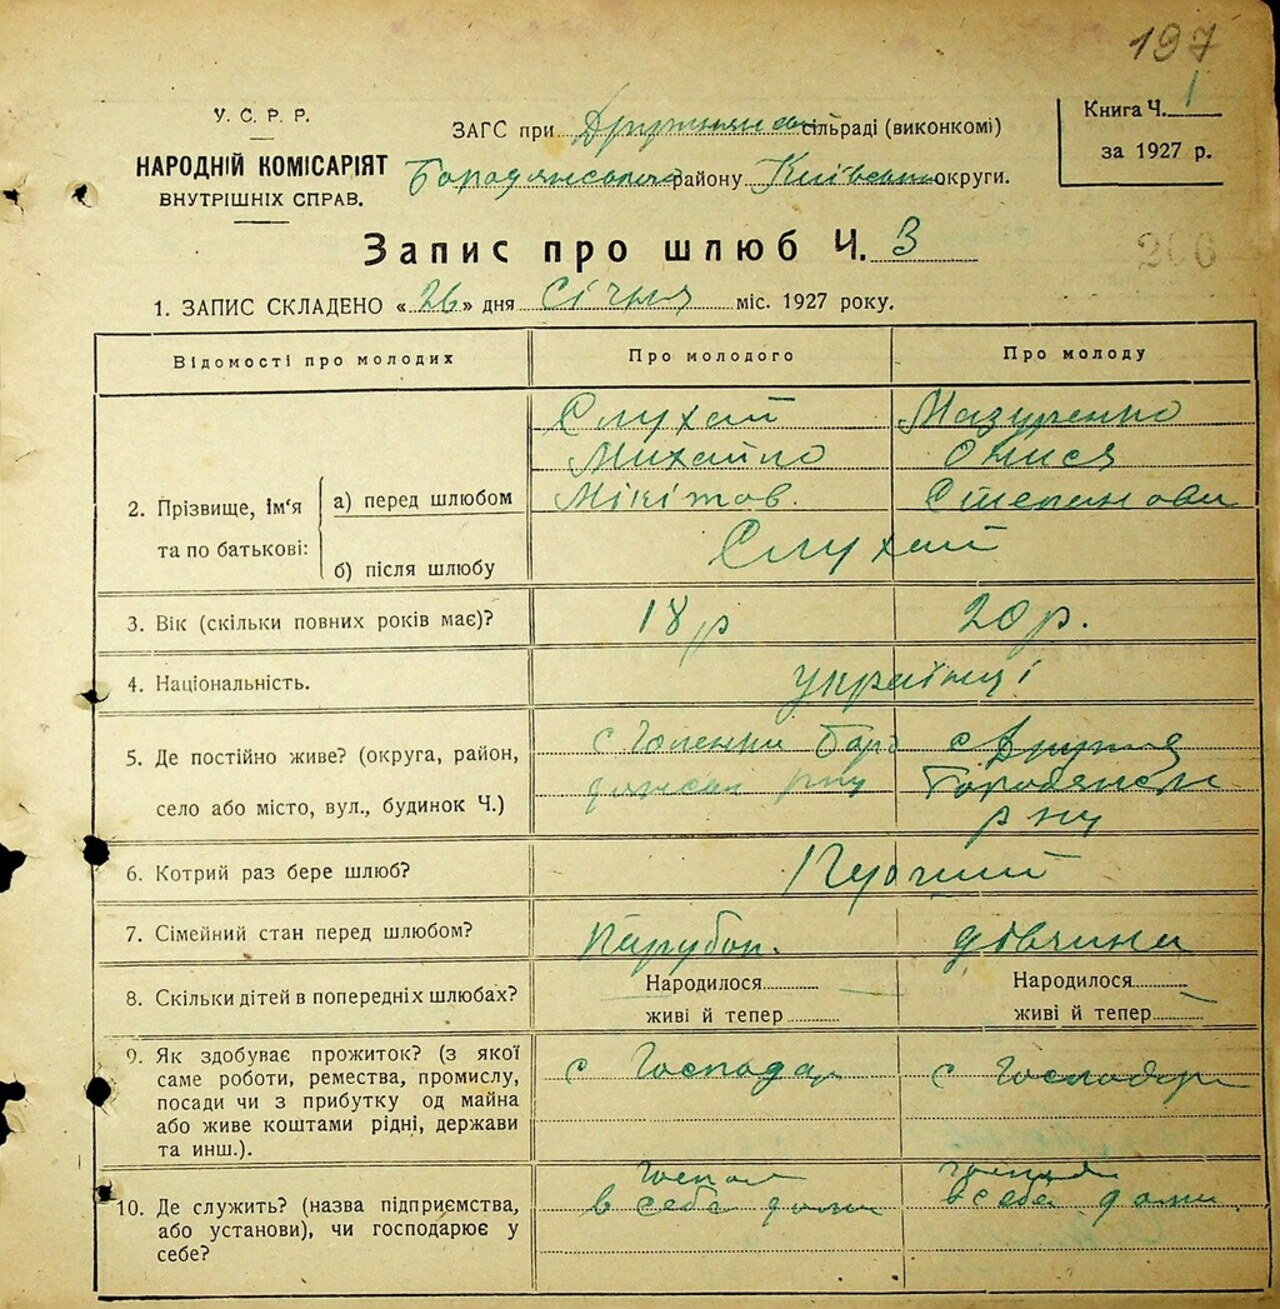 197
У. С. Р. Р.
НАРОДНІЙ КОМІСАРІЯТ
ВНУТРІШНІХ СПРАВ.
ЗАГС при Дружнянській сільраді (виконкомі)
Бородянського району Київської округи.
Книга Ч. 1
за 1927 р.
Запис про шлюб Ч. 3
206
1. ЗАПИС СКЛАДЕНО «26» дня Січня міс. 1927 року.
Відомості про молодих Про молодого Про молоду
2. Прізвище, ім'я та по батькові:
а) перед шлюбом
Слухай Мазуренко
Михайло Онися
Мікітов. Степанови
б) після шлюбу
Слухай
3. Вік (скільки повних років має)? 18 р 20 р.
4. Національність. українці
5. Де постійно живе? (округа, район, село або місто, вул., будинок Ч.)
с
с Дружня
рну Бородянськ
рну
6. Котрий раз бере шлюб? Перший
7. Сімейний стан перед шлюбом? Парубок. дівчина
8. Скільки дітей в попередніх шлюбах? Народилося Народилося
живі й тепер живі й тепер
9. Як здобуває прожиток? (з якої
саме роботи, ремества, промислу,
посади чи з прибутку од майна
або живе коштами рідні, держави
та инш.).
с Господар с Господар
10. Де служить? (назва підприємства,
або установи), чи господарює у
себе?
в себе дома в себе дома